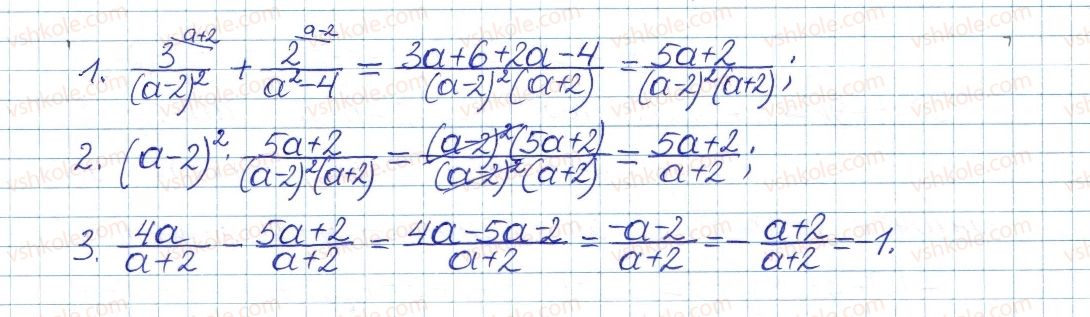 1. \frac{3^{\a+2}}{(a-2)^2} + \frac{2^{\a-2}}{a^2-4} = \frac{3a+6+2a-4}{(a-2)^2(a+2)} = \frac{5a+2}{(a-2)^2(a+2)};
2. (a-2)^2 · \frac{5a+2}{(a-2)^2(a+2)} = \frac{(a-2)^2(5a+2)}{(a-2)^2(a+2)} = \frac{5a+2}{a+2};
3. \frac{4a}{a+2} - \frac{5a+2}{a+2} = \frac{4a-5a-2}{a+2} = \frac{-a-2}{a+2} = -\frac{a+2}{a+2} = -1.